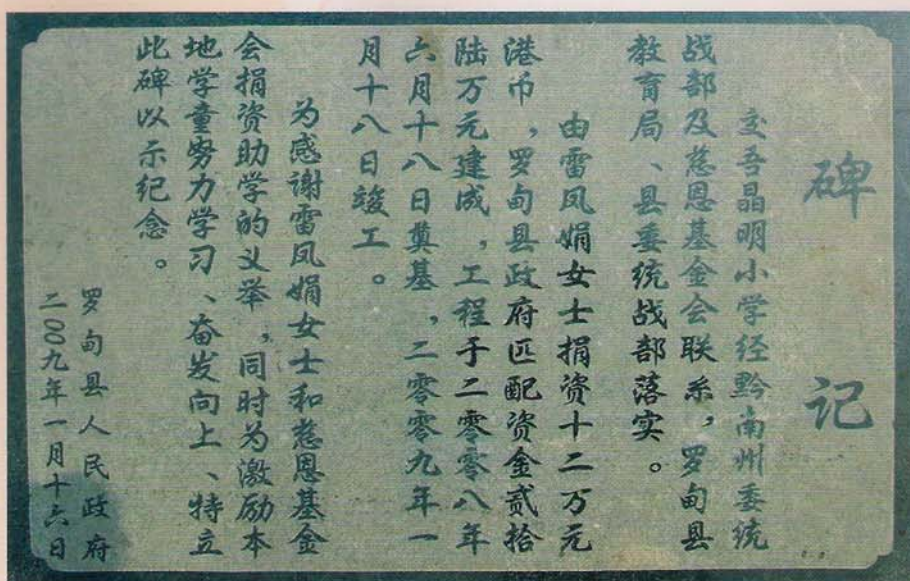 碑记
交吾晶明小学经黔南州委统
战部及慈恩基金会联系，罗甸县
教育局、县委统战部落实。
由雷凤娟女士捐资十二万元
港币，罗甸县政府匹配资金贰拾
陆万元建成，工程于二零零八年
六月十八日奠基，二零零九年一
月十八日竣工。
为感谢雷凤娟女士和慈恩基金
会捐资助学的义举，同时为激励本
地学童努力学习、奋发向上、特立
此碑以示纪念。
罗甸县人民政府
二〇〇九年一月十六日